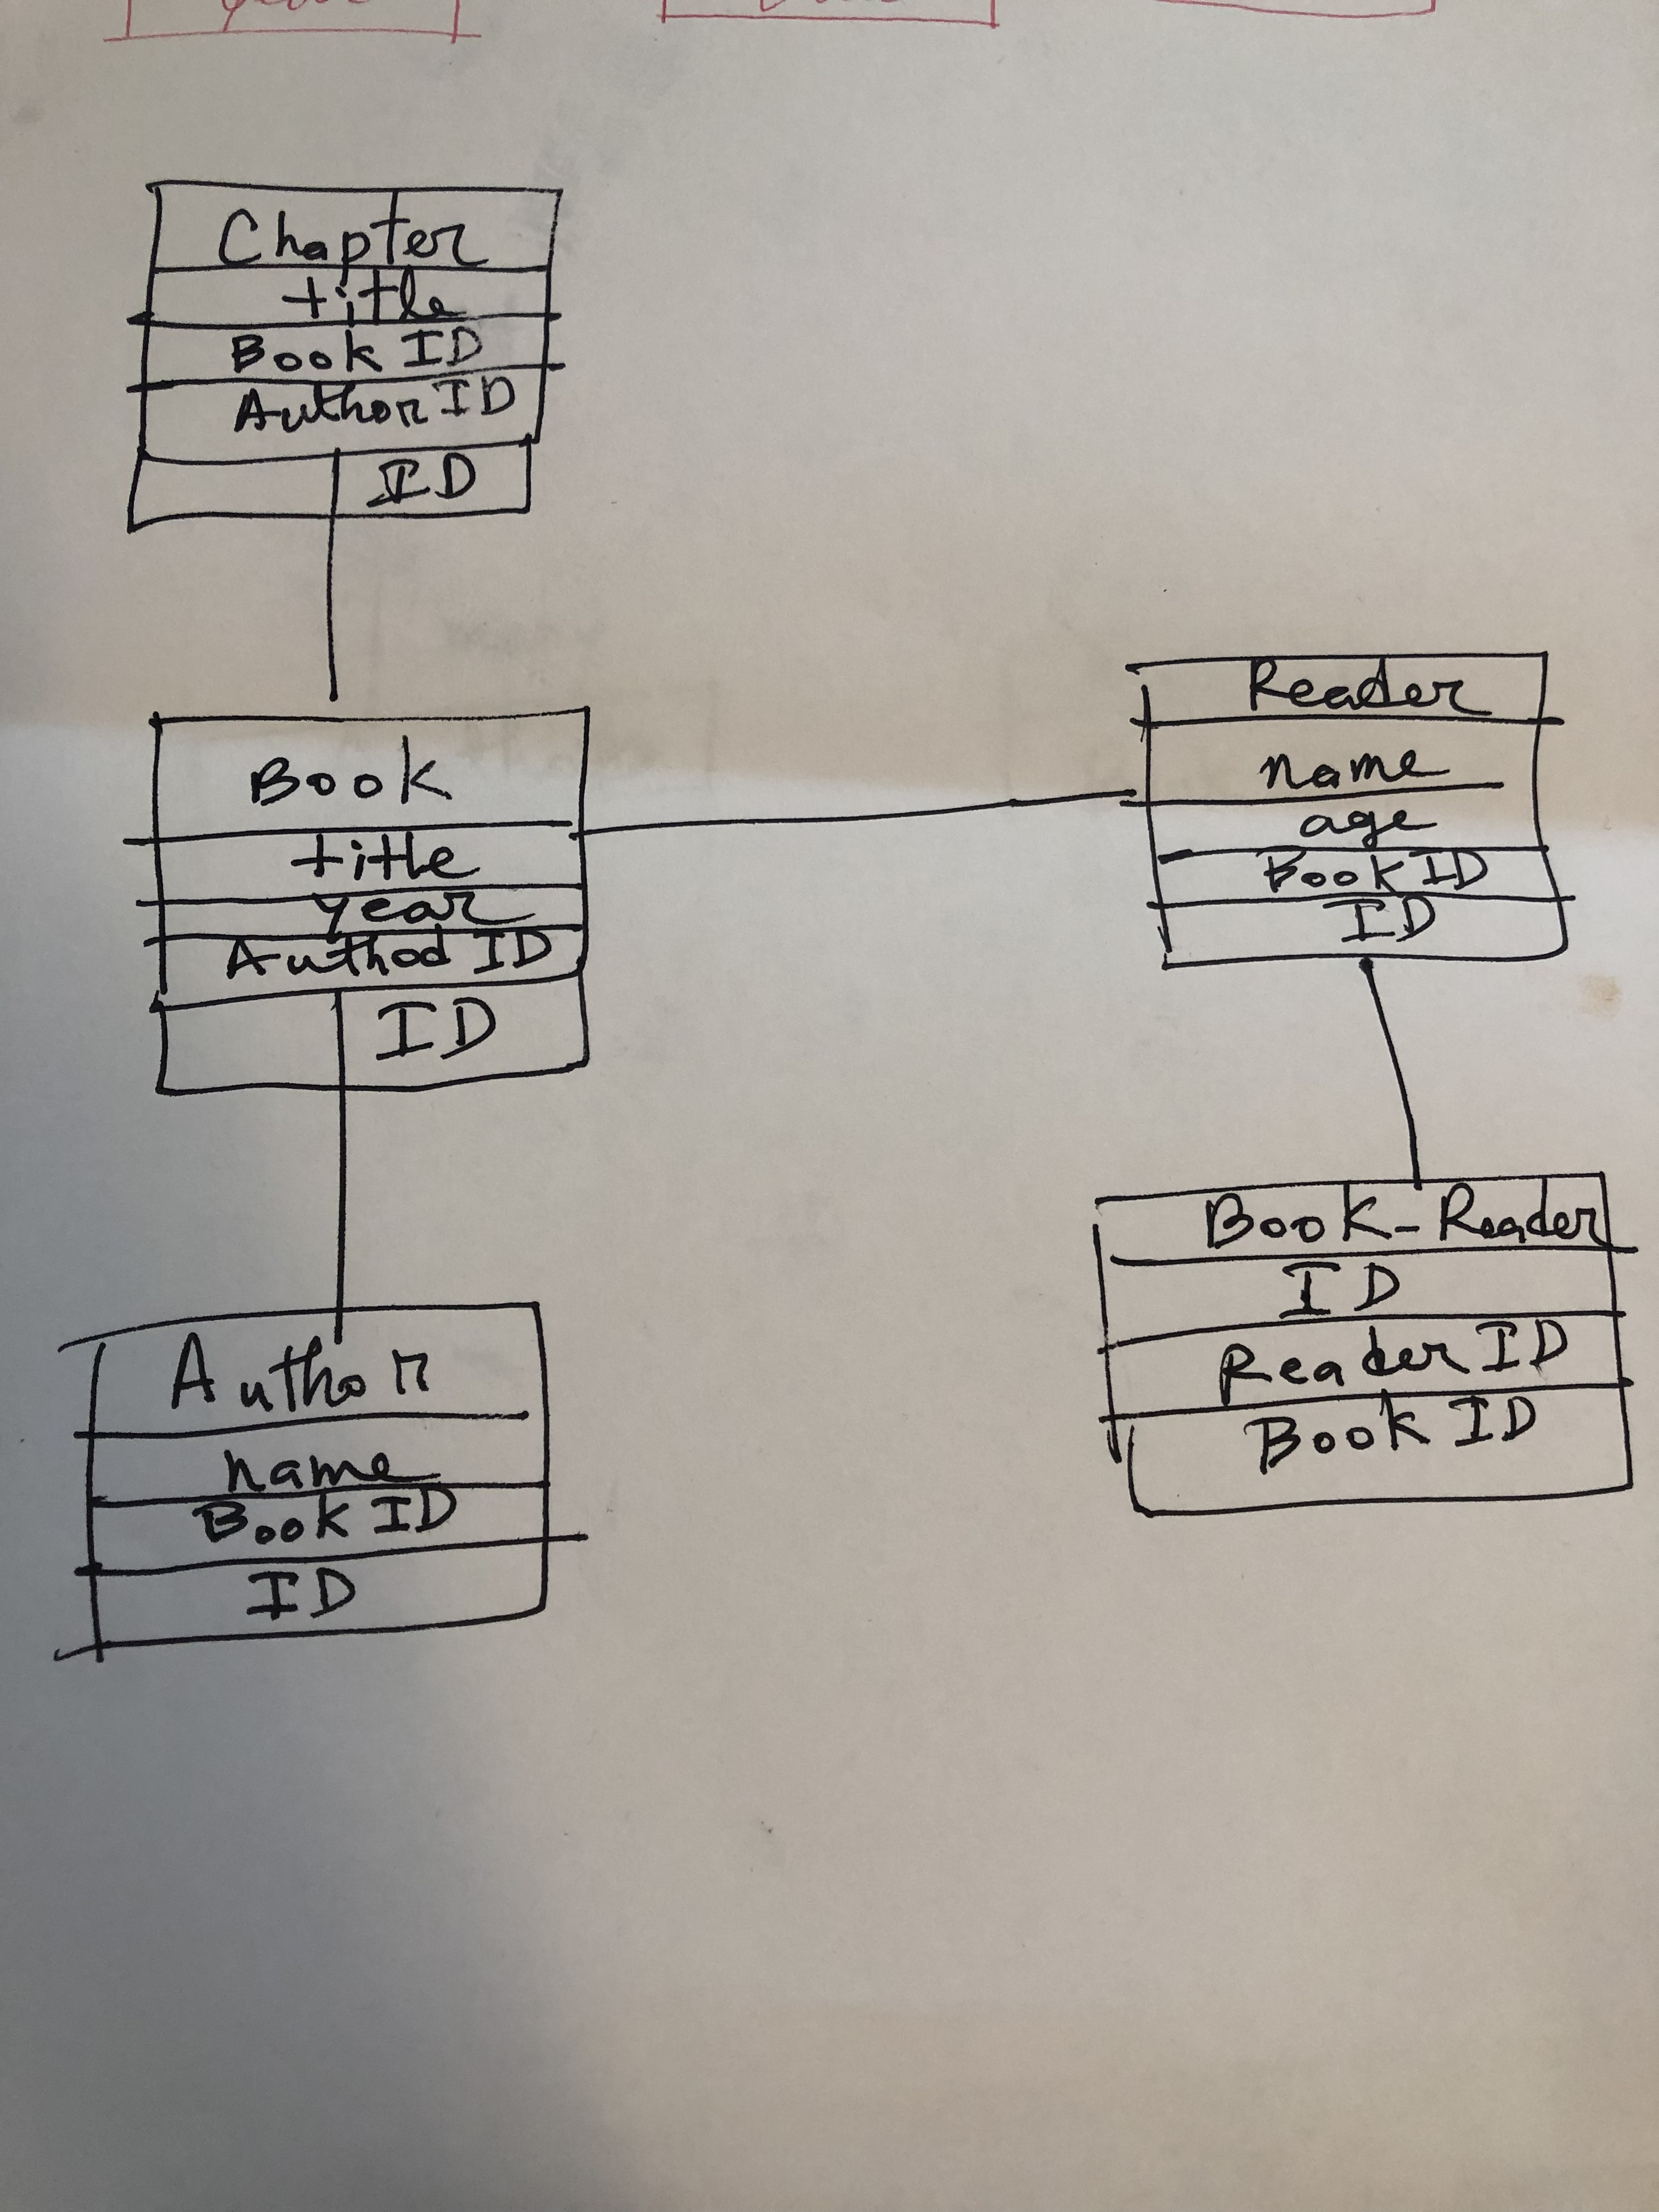 Chapter
title
Book ID
Author ID
ID
Book
title
year
Authod ID
ID
Author
name
Book ID
ID
Reader
name
age
Book ID
ID
Book-Reader
ID
Reader ID
Book ID